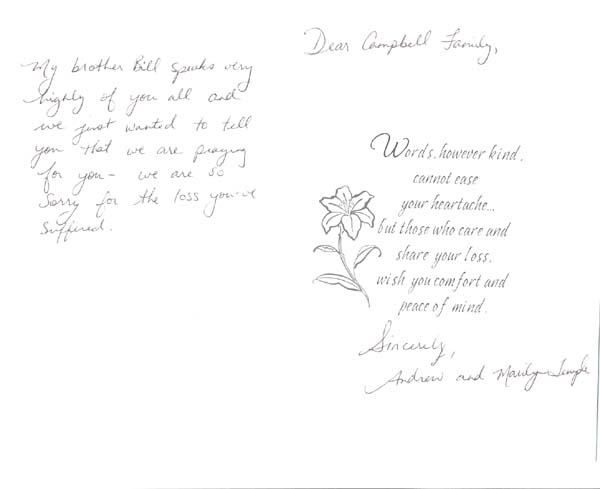 My brother Bill speaks very
highly of you all and
we just wanted to tell
you that we are praying
for you - we are so
sorry for the loss you've
suffered.
Dear Campbell Family,
Words, however kind,
cannot ease
your heartache...
but those who care and
share your loss,
wish you comfort and
peace of mind.
Sincerely,
Andrew and Marilyn Temple